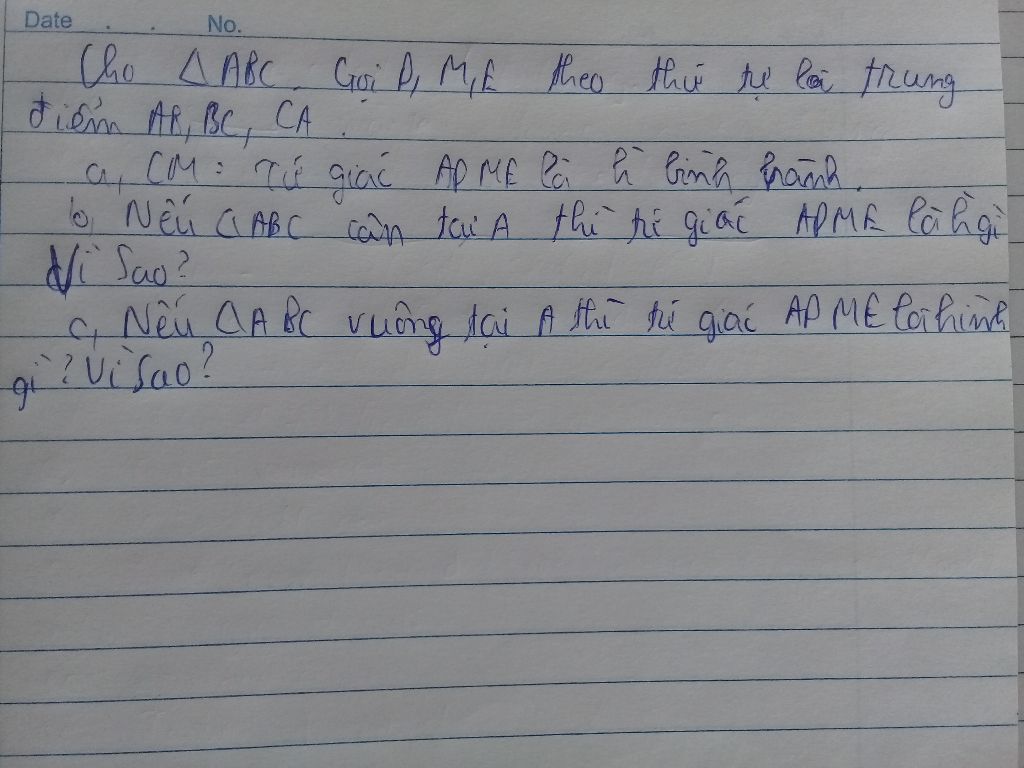 Date . . No.
Cho △ABC. Gọi D, M, E theo thứ tự là trung
điểm AB, BC, CA.
a, CM: Tứ giác ADME là h bình hành.
b, Nếu △ABC cân tại A thì tứ giác ADME là h gì
Vì sao?
c, Nếu △ABC vuông tại A thì tứ giác ADME là hình
gì? Vì sao?